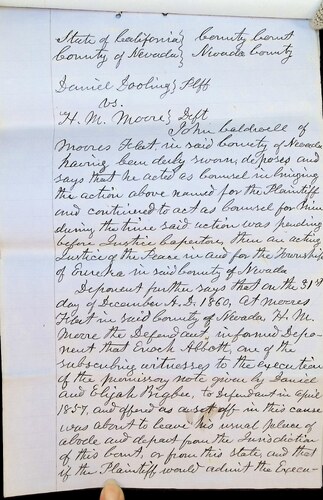 State of California } County Court
County of Nevada } Nevada County
Daniel Dooling } Plff
vs.
H. M. Moore } Deft
John Caldwell of
Moores Flat in said County of Nevada
having been duly sworn, deposes and
says that he acted as Counsel in bringing
the action above named for the Plaintiff
and continued to act as Counsel for him
during the time said action was pending
before Justice Carpenter, then an acting
Justice of the Peace in and for the Township
of Eureka in said County of Nevada
Deponent further says that on the 31st
day of December A.D. 1860, At Moores
Flat in said County of Nevada H. M.
Moore the Defendant, informed Depo-
nent that Enoch Abbott, one of the
subscribing witnesses to the execution
of the Promissory note given by Daniel
and Elijah Bigbee, to Defendant in April
1857, and offered as a set off in this cause
was about to leave his usual place of
abode and depart from the Jurisdiction
of this Court, or from this state, and that
if the Plaintiff would admit the Execu-